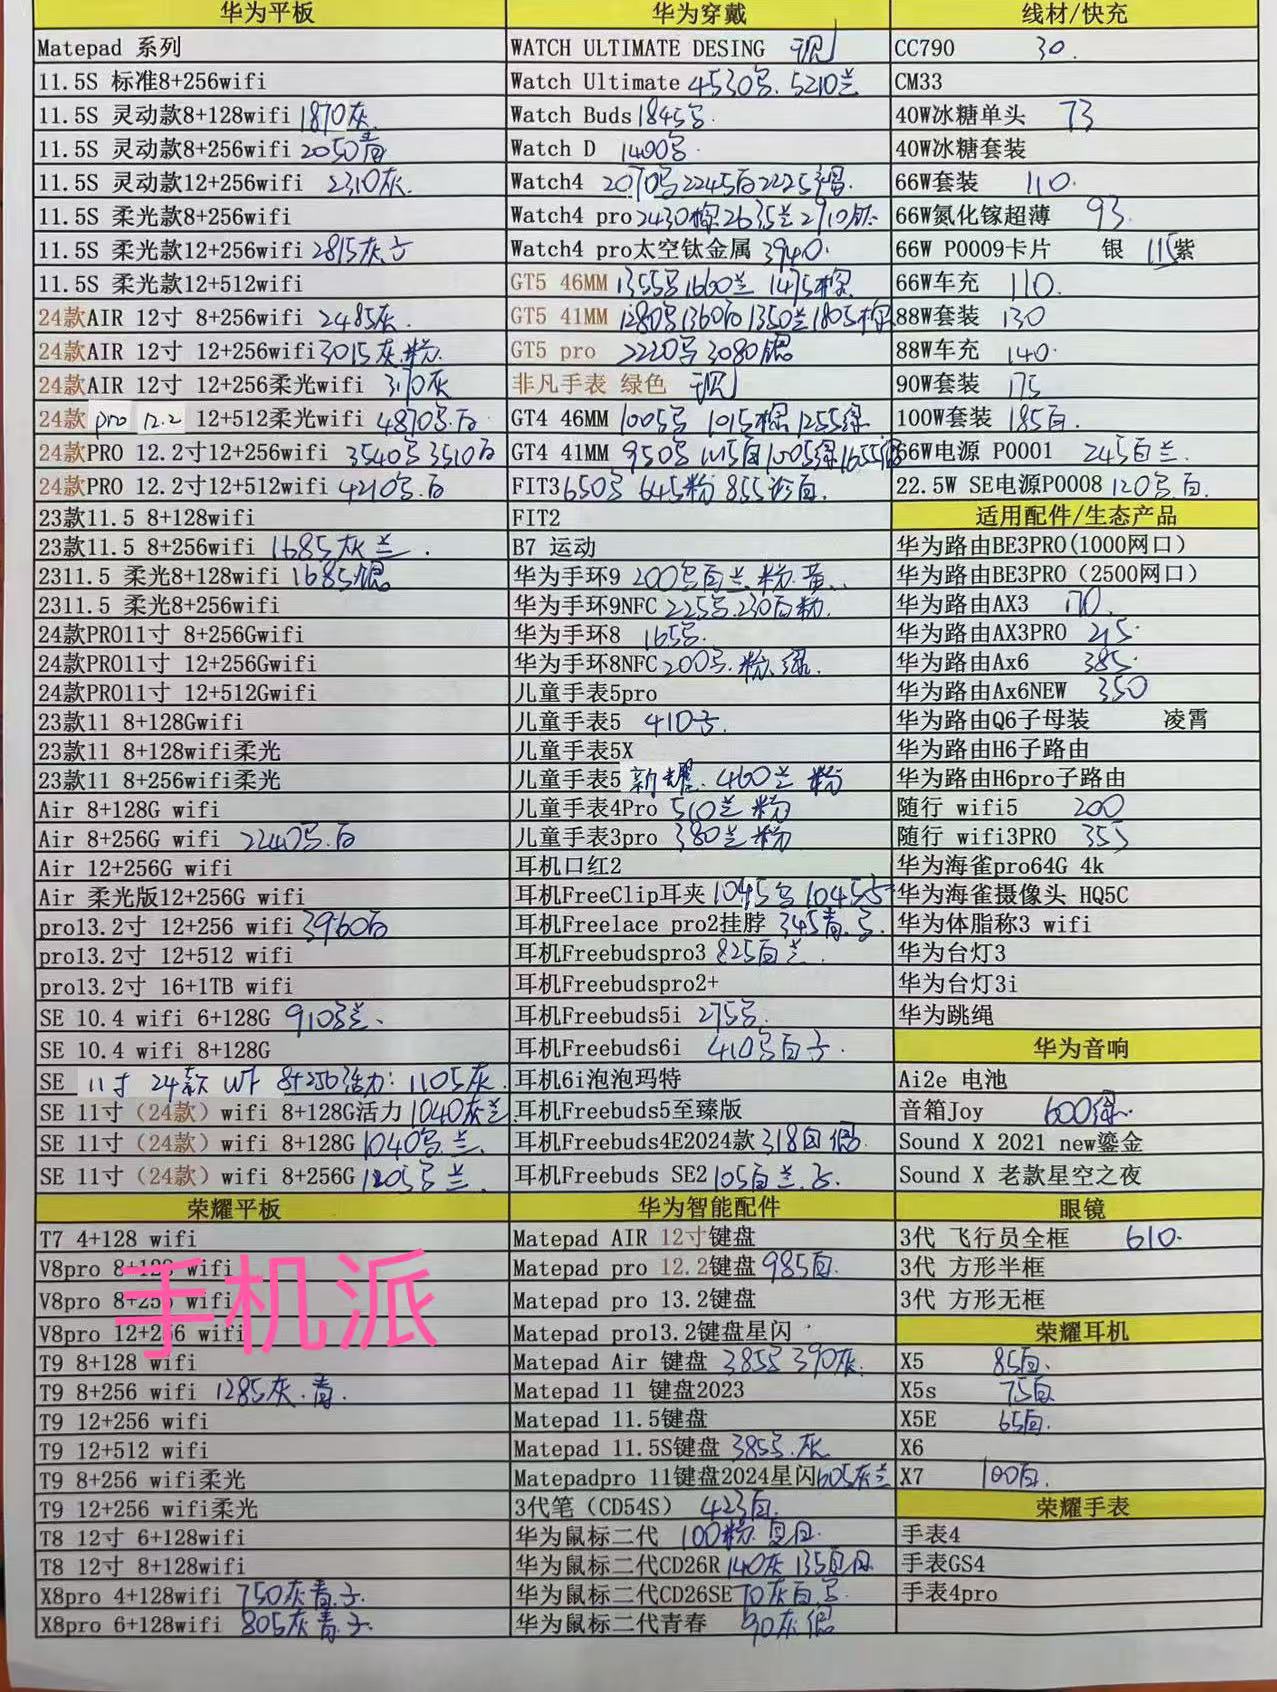 华为平板
Matepad 系列
11.5S 标准8+256wifi
11.5S 灵动款8+128wifi 1870灰
11.5S 灵动款8+256wifi 2050青
11.5S 灵动款12+256wifi 2310灰.
11.5S 柔光款8+256wifi
11.5S 柔光款12+256wifi 2815灰
11.5S 柔光款12+512wifi
24款AIR 12寸 8+256wifi 2485灰.
24款AIR 12寸 12+256wifi 3015灰.粉.
24款AIR 12寸 12+256柔光wifi 灰
24款 pro 12.2 12+512柔光wifi 4870 白
24款PRO 12.2寸12+256wifi 3540 3510白
24款PRO 12.2寸12+512wifi 4210 白
23款11.5 8+128wifi
23款11.5 8+256wifi 1685灰 兰.
2311.5 柔光8+128wifi 1685银
2311.5 柔光8+256wifi
24款PRO11寸 8+256Gwifi
24款PRO11寸 12+256Gwifi
24款PRO11寸 12+512Gwifi
23款11 8+128Gwifi
23款11 8+128wifi柔光
23款11 8+256wifi柔光
Air 8+128G wifi
Air 8+256G wifi 2240 白
Air 12+256G wifi
Air 柔光版12+256G wifi
pro13.2寸 12+256 wifi 3960白
pro13.2寸 12+512 wifi
pro13.2寸 16+1TB wifi
SE 10.4 wifi 6+128G 910 兰.
SE 10.4 wifi 8+128G
SE 11寸 24款 8+256活力: 1105灰
SE 11寸（24款）wifi 8+128G活力 1040灰兰
SE 11寸（24款）wifi 8+128G 1040 兰.
SE 11寸（24款）wifi 8+256G 1205 兰
荣耀平板
T7 4+128 wifi
V8pro 8+128 wifi
V8pro 8+256 wifi
手机派
V8pro 12+256 wifi
T9 8+128 wifi
T9 8+256 wifi 1285灰.青.
T9 12+256 wifi
T9 12+512 wifi
T9 8+256 wifi柔光
T9 12+256 wifi柔光
T8 12寸 6+128wifi
T8 12寸 8+128wifi
X8pro 4+128wifi 750灰青.
X8pro 6+128wifi 805灰青
华为穿戴
WATCH ULTIMATE DESING 现
Watch Ultimate 4530 5210兰
Watch Buds 1845
Watch D 1400
Watch4 2070 2245白2225
Watch4 pro 2430棕2635兰2910钛
Watch4 pro太空钛金属 3940.
GT5 46MM 1355 1600兰 1475棕
GT5 41MM 1280 1360白1350兰1805棕
GT5 pro 2220 3080银
非凡手表 绿色 现
GT4 46MM 1005 1015棕 1255绿
GT4 41MM 950 1115白1005绿1655银
FIT3 650 645粉 855 白.
FIT2
B7 运动
华为手环9 200 白兰.粉.黄.
华为手环9NFC 225 230白粉.
华为手环8 165
华为手环8NFC 200 粉.绿.
儿童手表5pro
儿童手表5 410
儿童手表5X
儿童手表5 新耀. 460兰 粉
儿童手表4Pro 510兰 粉
儿童手表3pro 380兰 粉
耳机口红2
耳机FreeClip耳夹 1045 1045
耳机Freelace pro2挂脖 345青
耳机Freebudspro3 825白兰.
耳机Freebudspro2+
耳机Freebuds5i 275
耳机Freebuds6i 410 白
耳机6i泡泡玛特
耳机Freebuds5至臻版
耳机Freebuds4E2024款 318白 银
耳机Freebuds SE2 105白兰.
华为智能配件
Matepad AIR 12寸键盘
Matepad pro 12.2键盘 985白.
Matepad pro 13.2键盘
Matepad pro13.2键盘星闪
Matepad Air 键盘 385 390灰.
Matepad 11 键盘2023
Matepad 11.5键盘
Matepad 11.5S键盘 385 灰.
Matepadpro 11键盘2024星闪605灰兰
3代笔（CD54S） 423白.
华为鼠标二代 100粉.
华为鼠标二代CD26R 140灰 135
华为鼠标二代CD26SE 70灰白
华为鼠标二代青春 90灰银
线材/快充
CC790 30.
CM33
40W冰糖单头 73
40W冰糖套装
66W套装 110.
66W氮化镓超薄 93.
66W P0009卡片 银 115紫
66W车充 110.
88W套装 130
88W车充 140.
90W套装 175
100W套装 185白.
66W电源 P0001 245白兰.
22.5W SE电源P0008 120 白.
适用配件/生态产品
华为路由BE3PRO(1000网口)
华为路由BE3PRO（2500网口）
华为路由AX3 170.
华为路由AX3PRO 215.
华为路由Ax6 385.
华为路由Ax6NEW 350
华为路由Q6子母装 凌霄
华为路由H6子路由
华为路由H6pro子路由
随行 wifi5 200
随行 wifi3PRO 355
华为海雀pro64G 4k
华为海雀摄像头 HQ5C
华为体脂称3 wifi
华为台灯3
华为台灯3i
华为跳绳
华为音响
Ai2e 电池
音箱Joy 600绿.
Sound X 2021 new鎏金
Sound X 老款星空之夜
眼镜
3代 飞行员全框 610.
3代 方形半框
3代 方形无框
荣耀耳机
X5 85白.
X5s 75白
X5E 65白.
X6
X7 100白.
荣耀手表
手表4
手表GS4
手表4pro